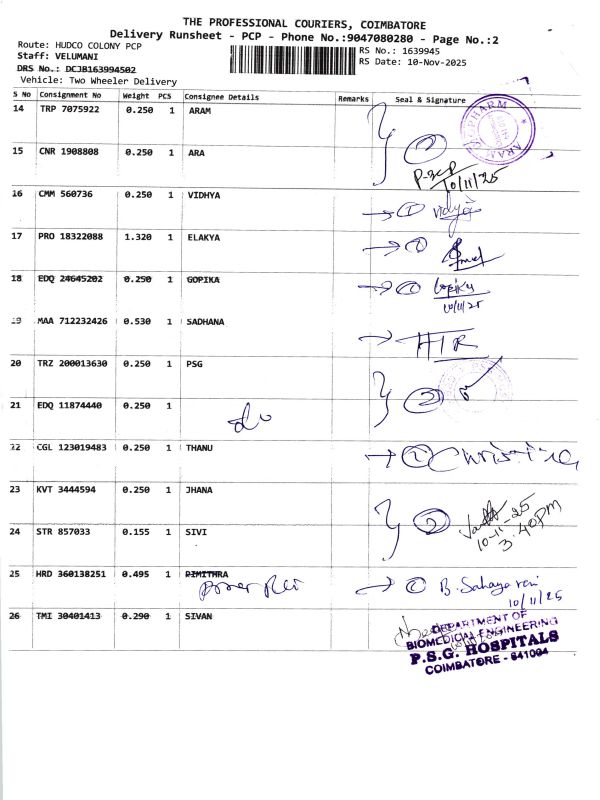 THE PROFESSIONAL COURIERS, COIMBATORE
Delivery Runsheet - PCP - Phone No.:9047080280 - Page No.:2
Route: HUDCO COLONY PCP
RS No.: 1639945
Staff: VELUMANI
RS Date: 10-Nov-2025
DRS No.: DCJB163994502
Vehicle: Two Wheeler Delivery
S No Consignment No Weight PCS Consignee Details Remarks Seal & Signature
14 TRP 7075922 0.250 1 ARAM
2
15 CNR 1908808 0.250 1 ARA
10/11/25
16 CMM 560736 0.250 1 VIDHYA
→ 1 Vidya
17 PRO 18322088 1.320 1 ELAKYA
→ 1
18 EDQ 24645202 0.250 1 GOPIKA
→ 1 Gopika
10/11/25
19 MAA 712232426 0.530 1 SADHANA
→ HIR
20 TRZ 200013630 0.250 1 PSG
2
21 EDQ 11874440 0.250 1
do
22 CGL 123019483 0.250 1 THANU
→ 1 Christina
23 KVT 3444594 0.250 1 JHANA
2
10-11-25
3:40PM
24 STR 857033 0.155 1 SIVI
25 HRD 360138251 0.495 1 DIMITHRA
→ 1 B. Sahaya
10/11/25
26 TMI 30401413 0.290 1 SIVAN
DEPARTMENT OF
BIOMEDICAL ENGINEERING
P.S.G. HOSPITALS
COIMBATORE - 641004